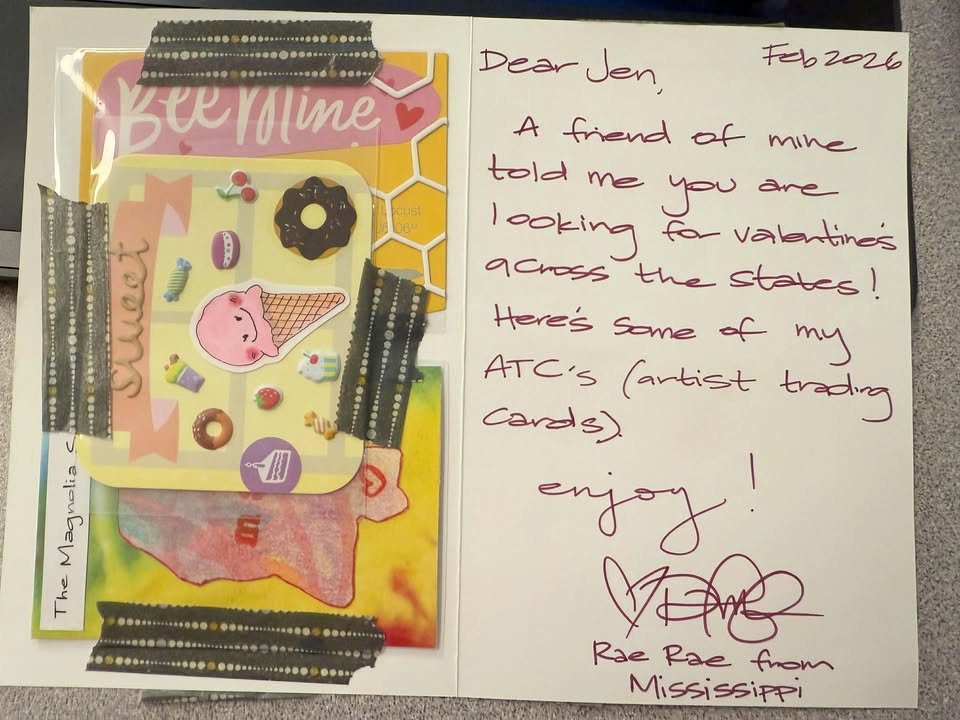 Bee Mine
Locust
Sweet
The Magnolia
m
Dear Jen,
Feb 2026
A friend of mine
told me you are
looking for valentine's
across the states!
Here's some of my
ATC's (artist trading
cards).
enjoy!
Rae Rae from
Mississippi